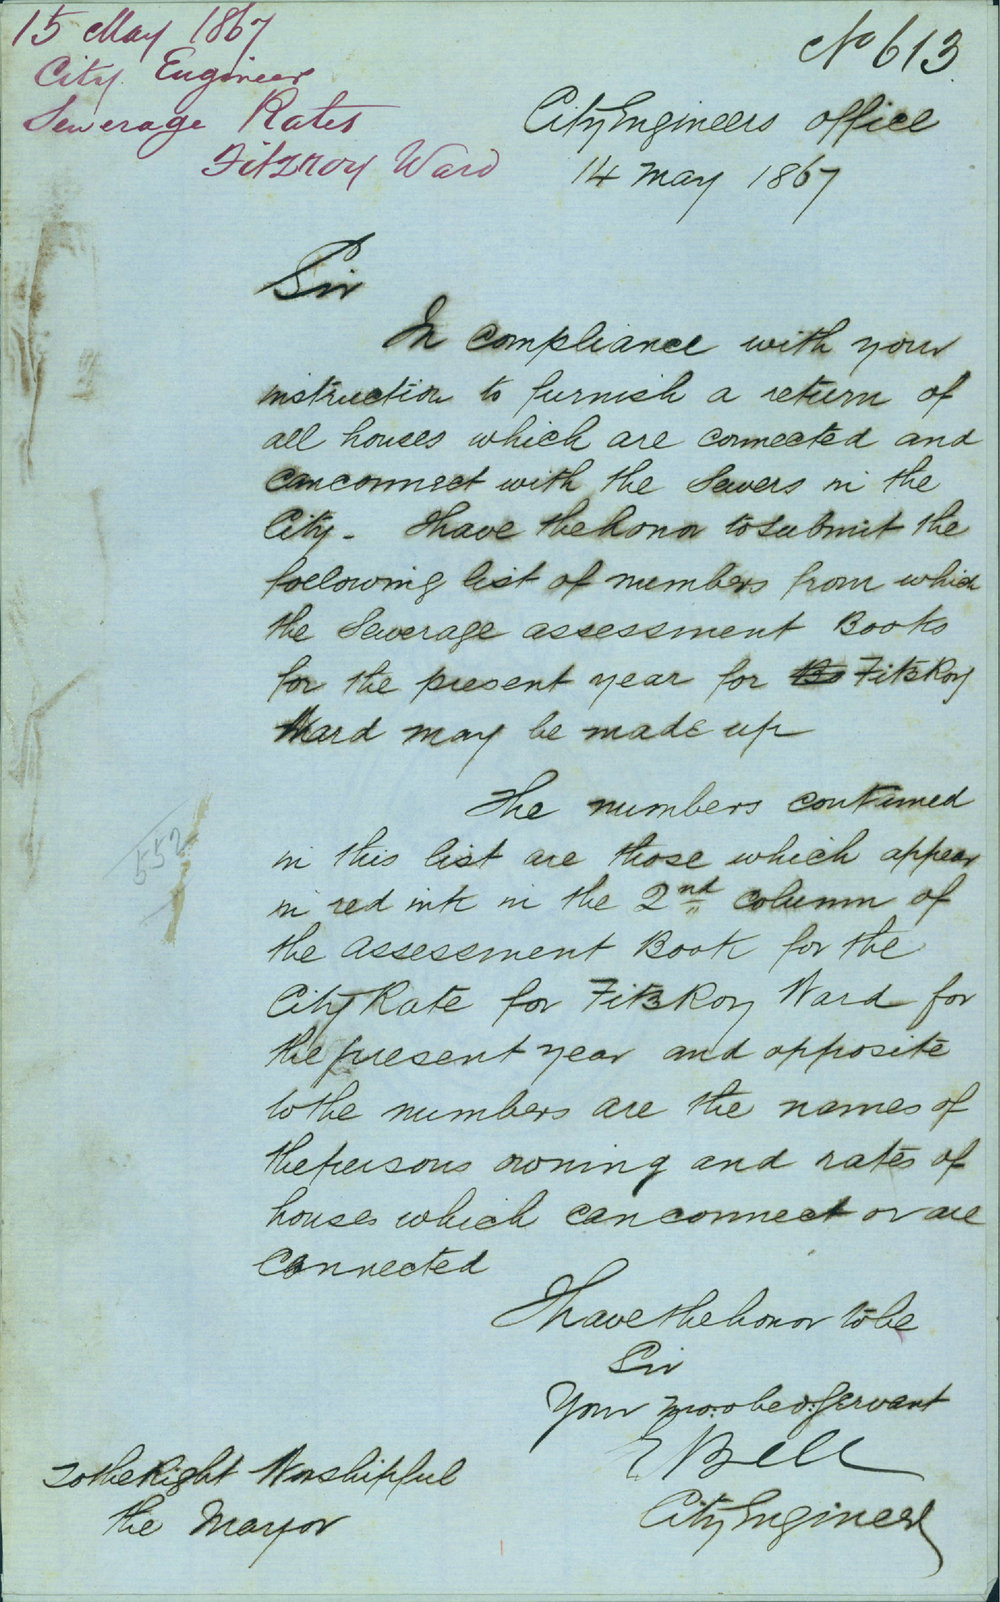 15 May 1867
City Engineer
Sewerage Rates
Fitzroy Ward
No 613
City Engineers office
14 May 1867
Sir
In compliance with your
instruction to furnish a return of
all houses which are connected and
can connect with the Sewers in the
City - I have the honor to submit the
following list of numbers from which
the Sewerage assessment Books
for the present year for Fitz Roy
Ward may be made up
The numbers contained
in this list are those which appear
in red ink in the 2nd column of
the assessment Book for the
City Rate for Fitz Roy Ward for
the present year and opposite
to the numbers are the names of
the persons owning and rates of
houses which can connect or are
Connected
I have the honor to be
Sir
Your mo: obed: Servant
E Bell
City Engineer
To the Right Worshipful
the Mayor
552